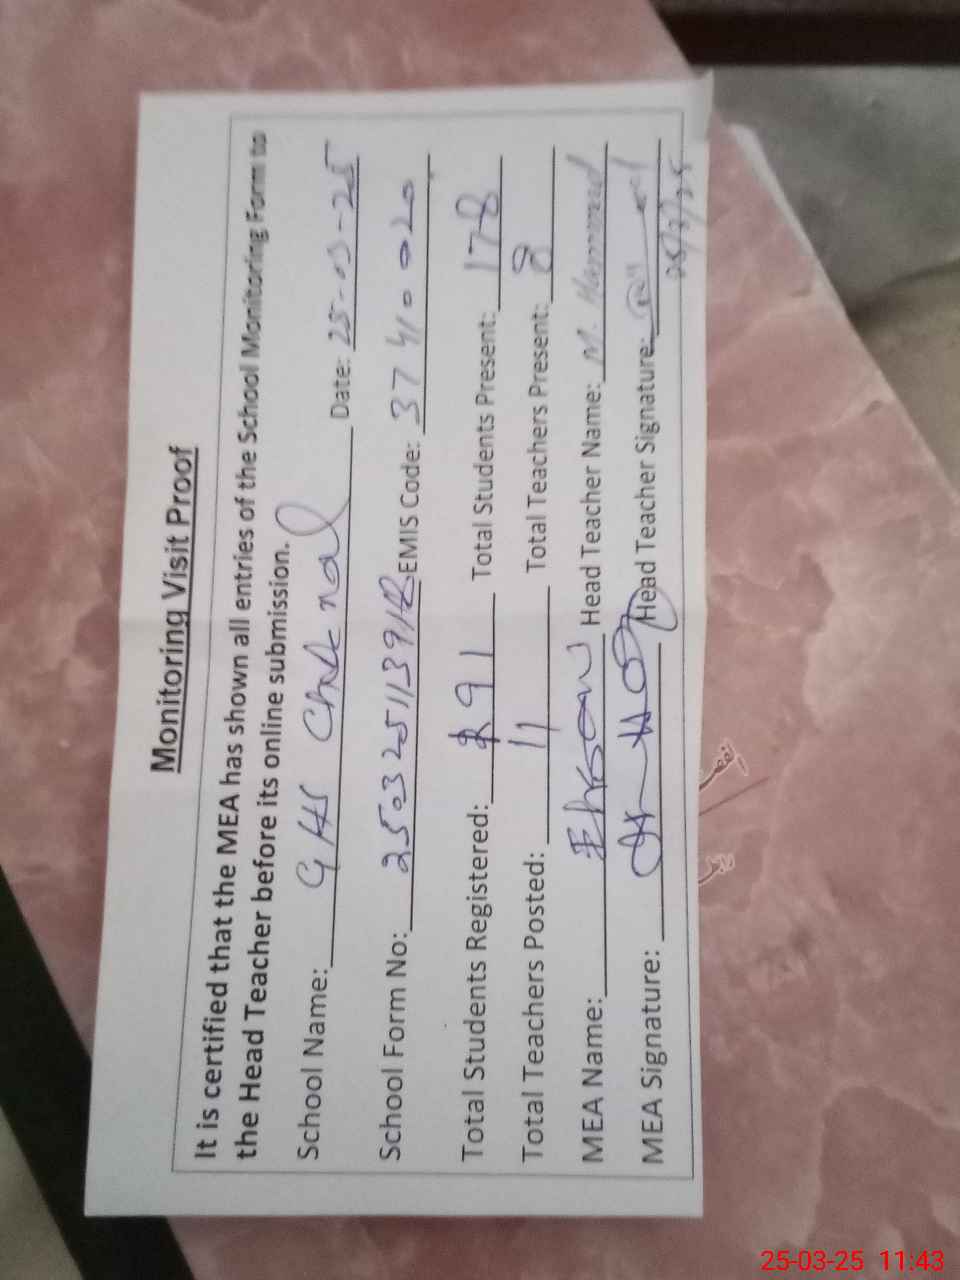 Monitoring Visit Proof
It is certified that the MEA has shown all entries of the School Monitoring Form to
the Head Teacher before its online submission.
School Name: GHS Date: 25-03-25
School Form No: EMIS Code: 37410020
Total Students Registered: 291 Total Students Present: 178
Total Teachers Posted: 11 Total Teachers Present: 8
MEA Name: Ehsan Head Teacher Name: M. Hammad
MEA Signature: Head Teacher Signature:
25/3/25
25-03-25 11:43